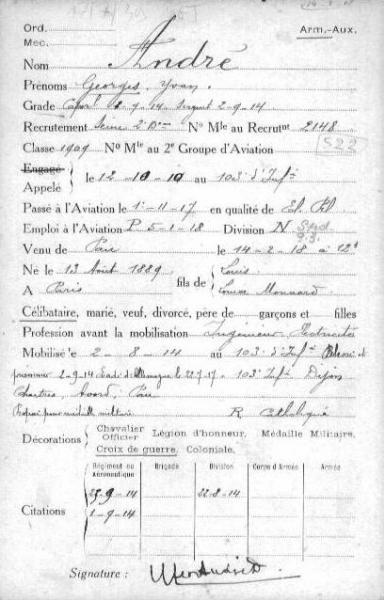 Ord. Arm.-Aux.
Mec.
Nom André
Prénoms Georges, Yvan.
Grade Capor 2-9-14 Sergent 2-9-14
Recrutement Seine 2e Bau No Mle au Recrutnt 2148
Classe 1909 No Mle au 2e Groupe d'Aviation 522
Engagé
Appelé le 12-10-10 au 103e d'Infie
Passé à l'Aviation le 1-11-17 en qualité de El. Pil
Emploi à l'Aviation P. 5-1-18 Division N
Venu de Pau le 14-2-18 à
Né le 13 Août 1889 fils de Louis
A Paris Louise Monnard
Célibataire, marié, veuf, divorcé, père de garçons et filles
Profession avant la mobilisation Ingénieur
Mobilisé le 2-8-14 au 103e d'Infie Blessé et
prisonnier 2-9-14 Evadé d'Allemagne le 22-9-17 103e Infie Dijon
Chartres, Avord, Pau
Proposé pour médaille militaire R. Catholique
Décorations Chevalier Officier Légion d'honneur, Médaille Militaire,
Croix de guerre, Coloniale.
Régiment ou Aéronautique Brigade Division Corps d'Armée Armée
25-9-14 22-8-14
Citations 1-9-14
Signature :